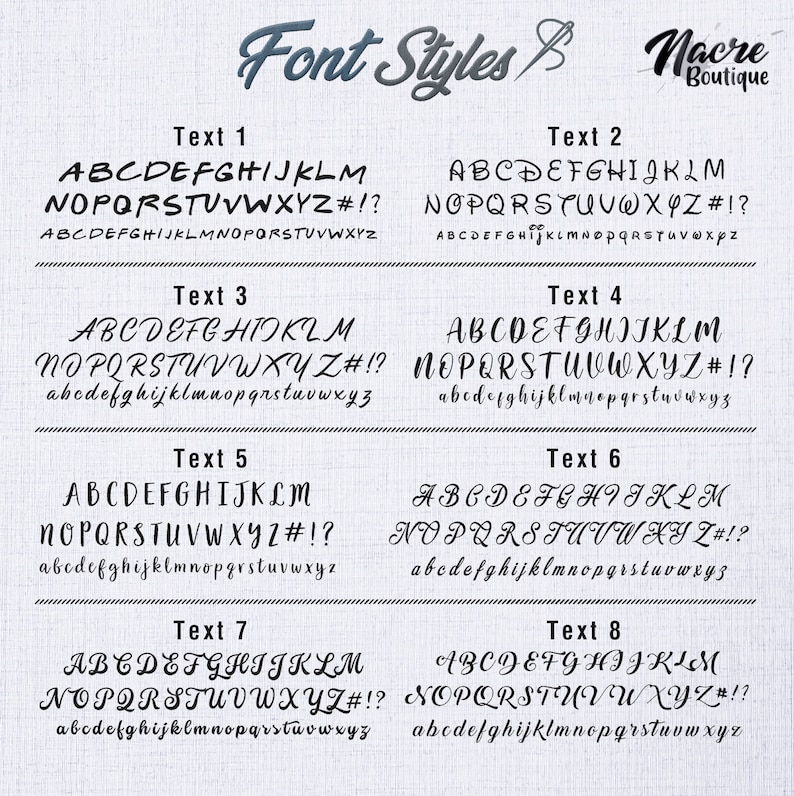 Font Styles
Nacre
Boutique
Text 1
ABCDEFGHIJKLM
NOPQRSTUVWXYZ#!?
ABCDEFGHIJKLMNOPQRSTUVWXYZ
Text 2
ABCDEFGHIJKLM
NOPQRSTUVWXYZ#!?
ABCDEFGHijKLMNOPQRSTUVWXYZ
Text 3
ABCDEFGHIJKLM
NOPQRSTUVWXYZ#!?
abcdefghijklmnopqrstuvwxyz
Text 4
ABCDEFGHIJKLM
NOPQRSTUVWXYZ#!?
abcdefghijklmnopqrstuvwxyz
Text 5
ABCDEFGHIJKLM
NOPQRSTUVWXYZ#!?
abcdefghijklmnopqrstuvwxyz
Text 6
ABCDEFGHIJKLM
NOPQRSTUVWXYZ#!?
abcdefghijklmnopqrstuvwxyz
Text 7
ABCDEFGHIJKLM
NOPQRSTUVWXYZ#!?
abcdefghijklmnopqrstuvwxyz
Text 8
ABCDEFGHIJKLM
NOPQRSTUVWXYZ#!?
abcdefghijklmnopqrstuvwxyz